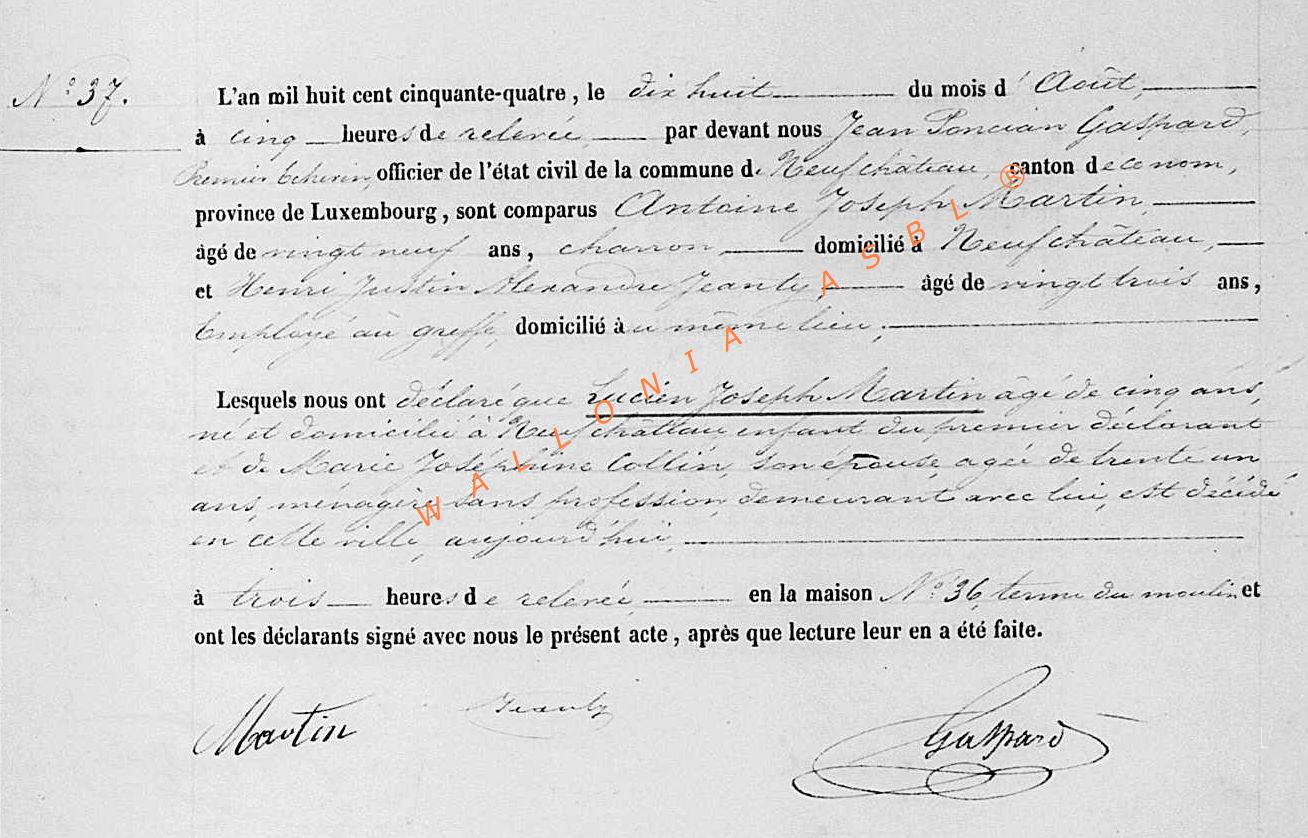 N.º 37.
L'an mil huit cent cinquante-quatre, le dix huit du mois d'Août,
à cinq heures de relevée, par devant nous Jean Poncian Gaspard,
Premier Echevin, officier de l'état civil de la commune de Neufchâteau, canton de ce nom,
province de Luxembourg, sont comparus Antoine Joseph Martin,
âgé de vingt neuf ans, charron, domicilié à Neufchâteau,
et Henri Justin Alexandre Jeanty, âgé de vingt trois ans,
Employé au greffe, domicilié au même lieu;
Lesquels nous ont déclaré que Lucien Joseph Martin âgé de cinq ans,
né et domicilié à Neufchâteau, enfant du premier déclarant
et de Marie Joséphine Collin, son épouse, agée de trente un
ans, ménagère sans profession, demeurant avec lui, est décédé
en cette ville, aujourd'hui,
à trois heures de relevée, en la maison N.º 36, du moulin, et
ont les déclarants signé avec nous le présent acte, après que lecture leur en a été faite.
Martin Jeanty Gaspard
WALLONIA ASBL ®